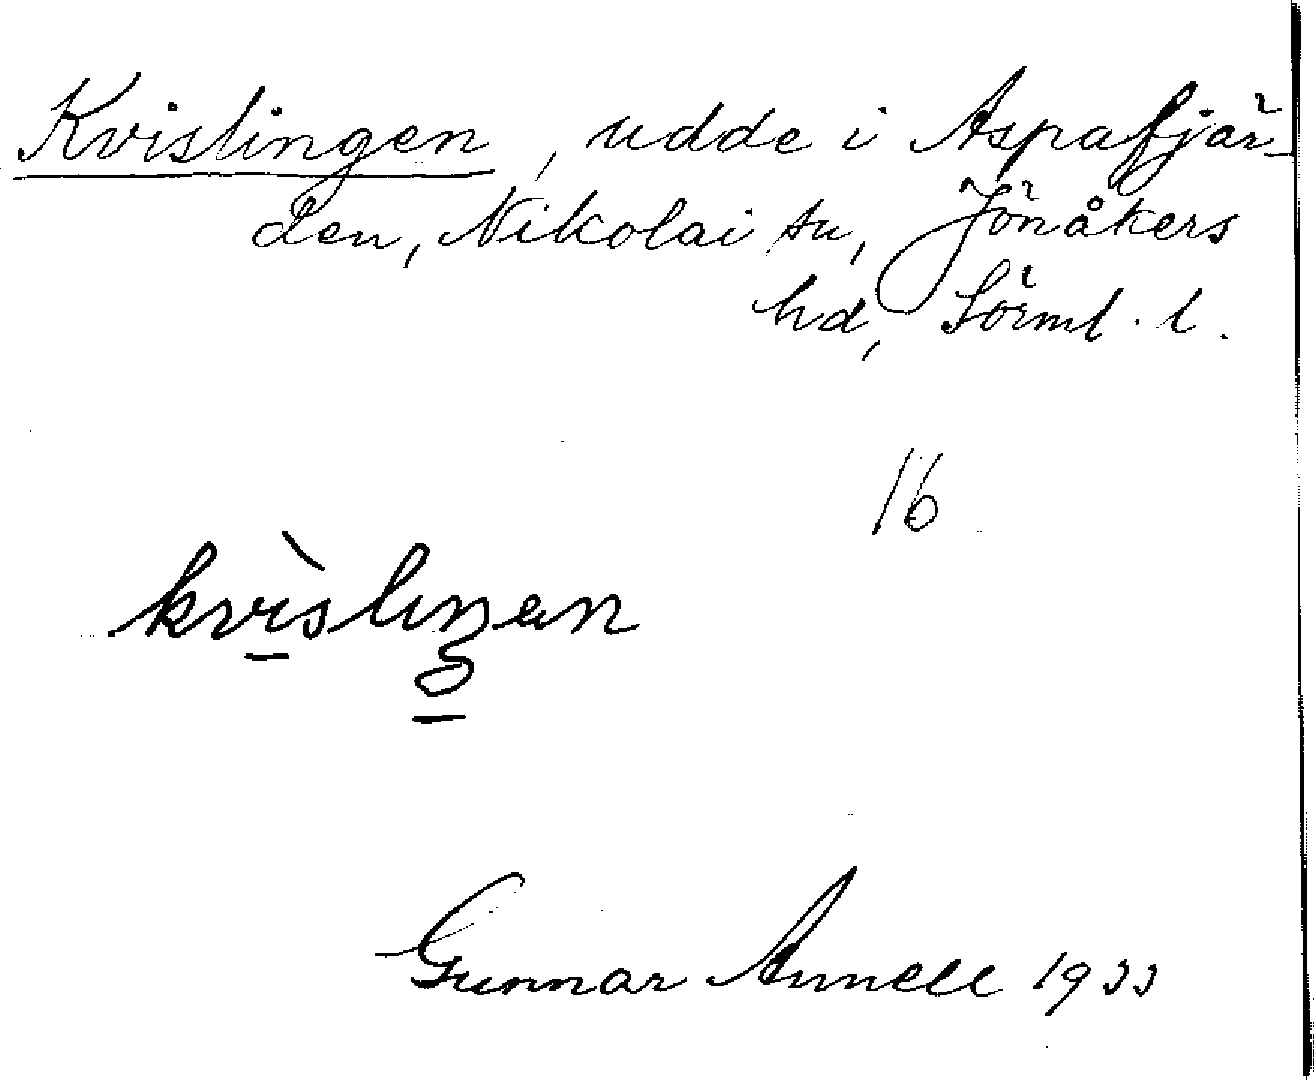 Kvislingen, udde i Aspafjär-
den, Nikolai sn, Jönåkers
hd, Sörml. l.
16
kvìslıŋen
Gunnar Annell 1933